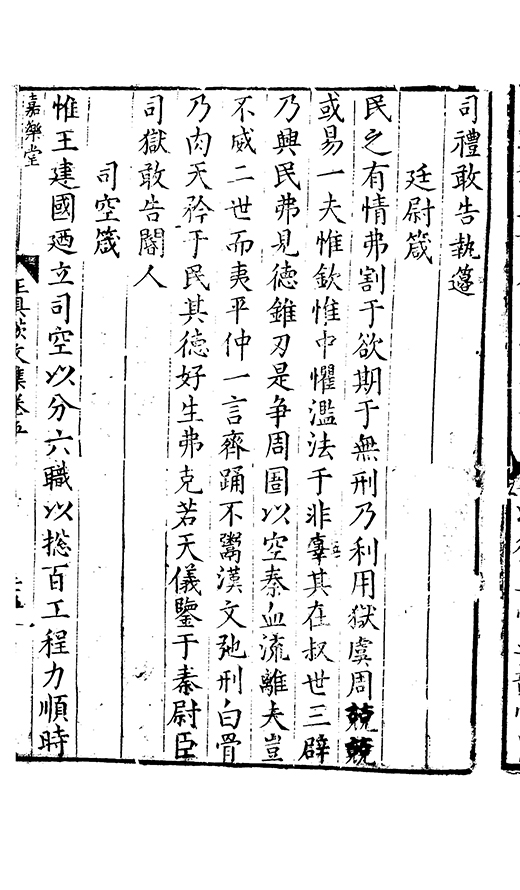 司禮敢告執籩
廷尉箴
民之有情弗割于欲期于無刑乃利用獄虞周兢兢
或易一夫惟欽惟中懼濫法于非辜其在叔世三辟
乃興民弗見德錐刀是争周圄以空秦血流離夫豈
不威二世而夷平仲一言齊踊不鬻漢文弛刑白骨
乃肉天矜于民其德好生弗克若天儀鑒于秦尉臣
司獄敢告閽人
司空箴
惟王建國廼立司空以分六職以揔百工程力順時
嘉樂堂
集卷五